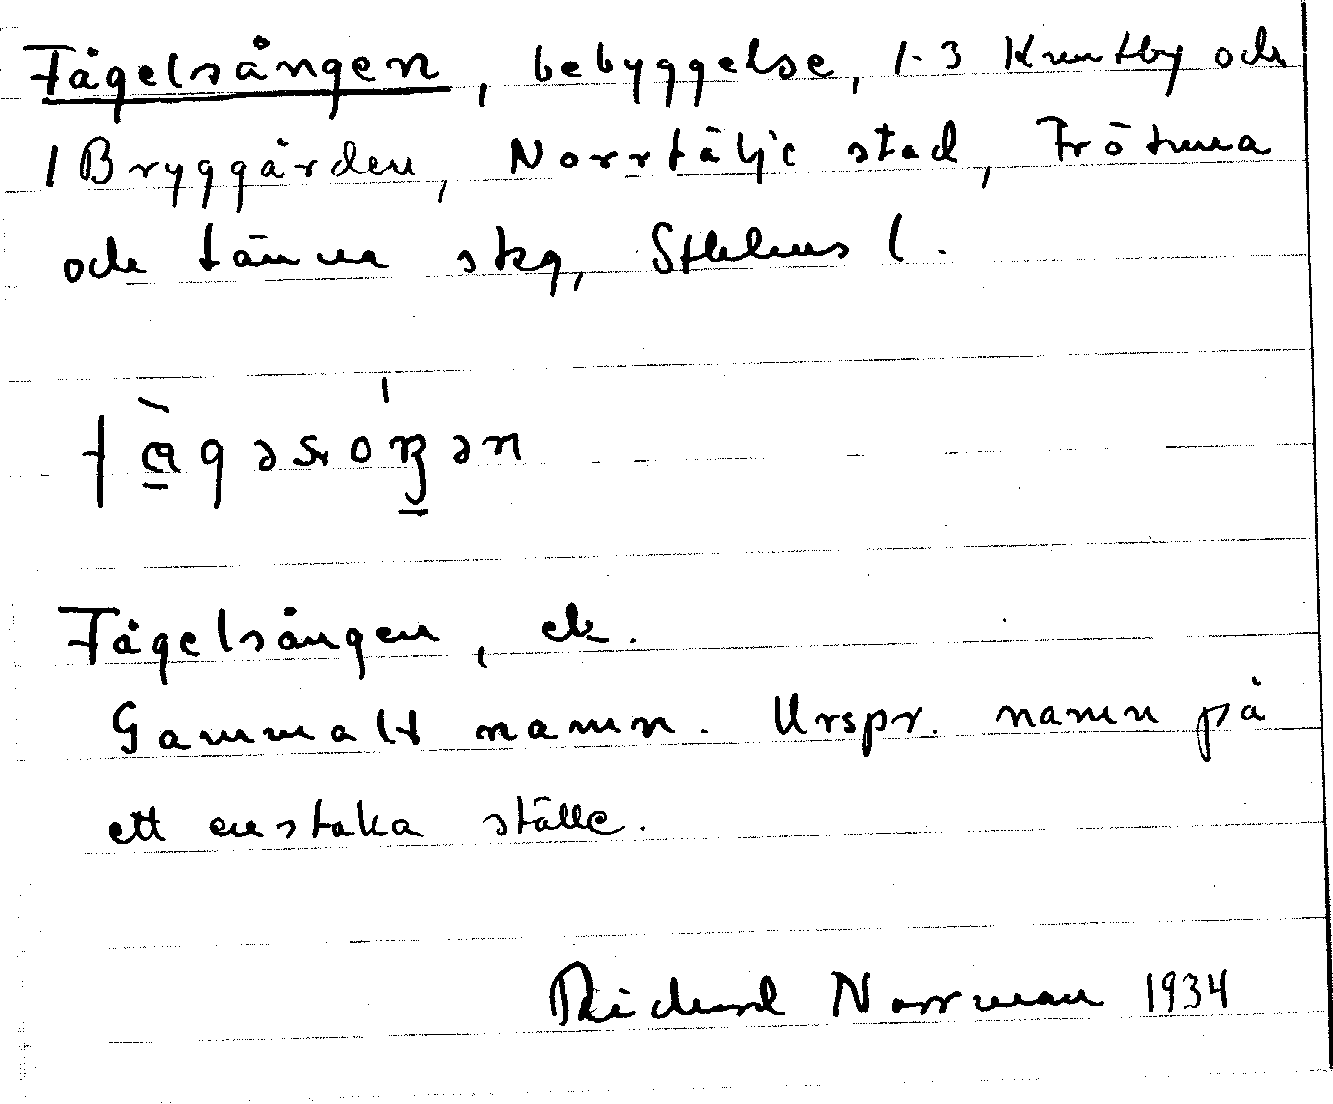 Fågelsången, bebyggelse, 1-3 Knutby och
1 Bryggården, Norrtälje stad, Frötuna
och Länna skg, Sthlms l.
Fågelsången, ek.
Gammalt namn. Urspr. namn på
ett enstaka ställe.
Richard Norrman 1934